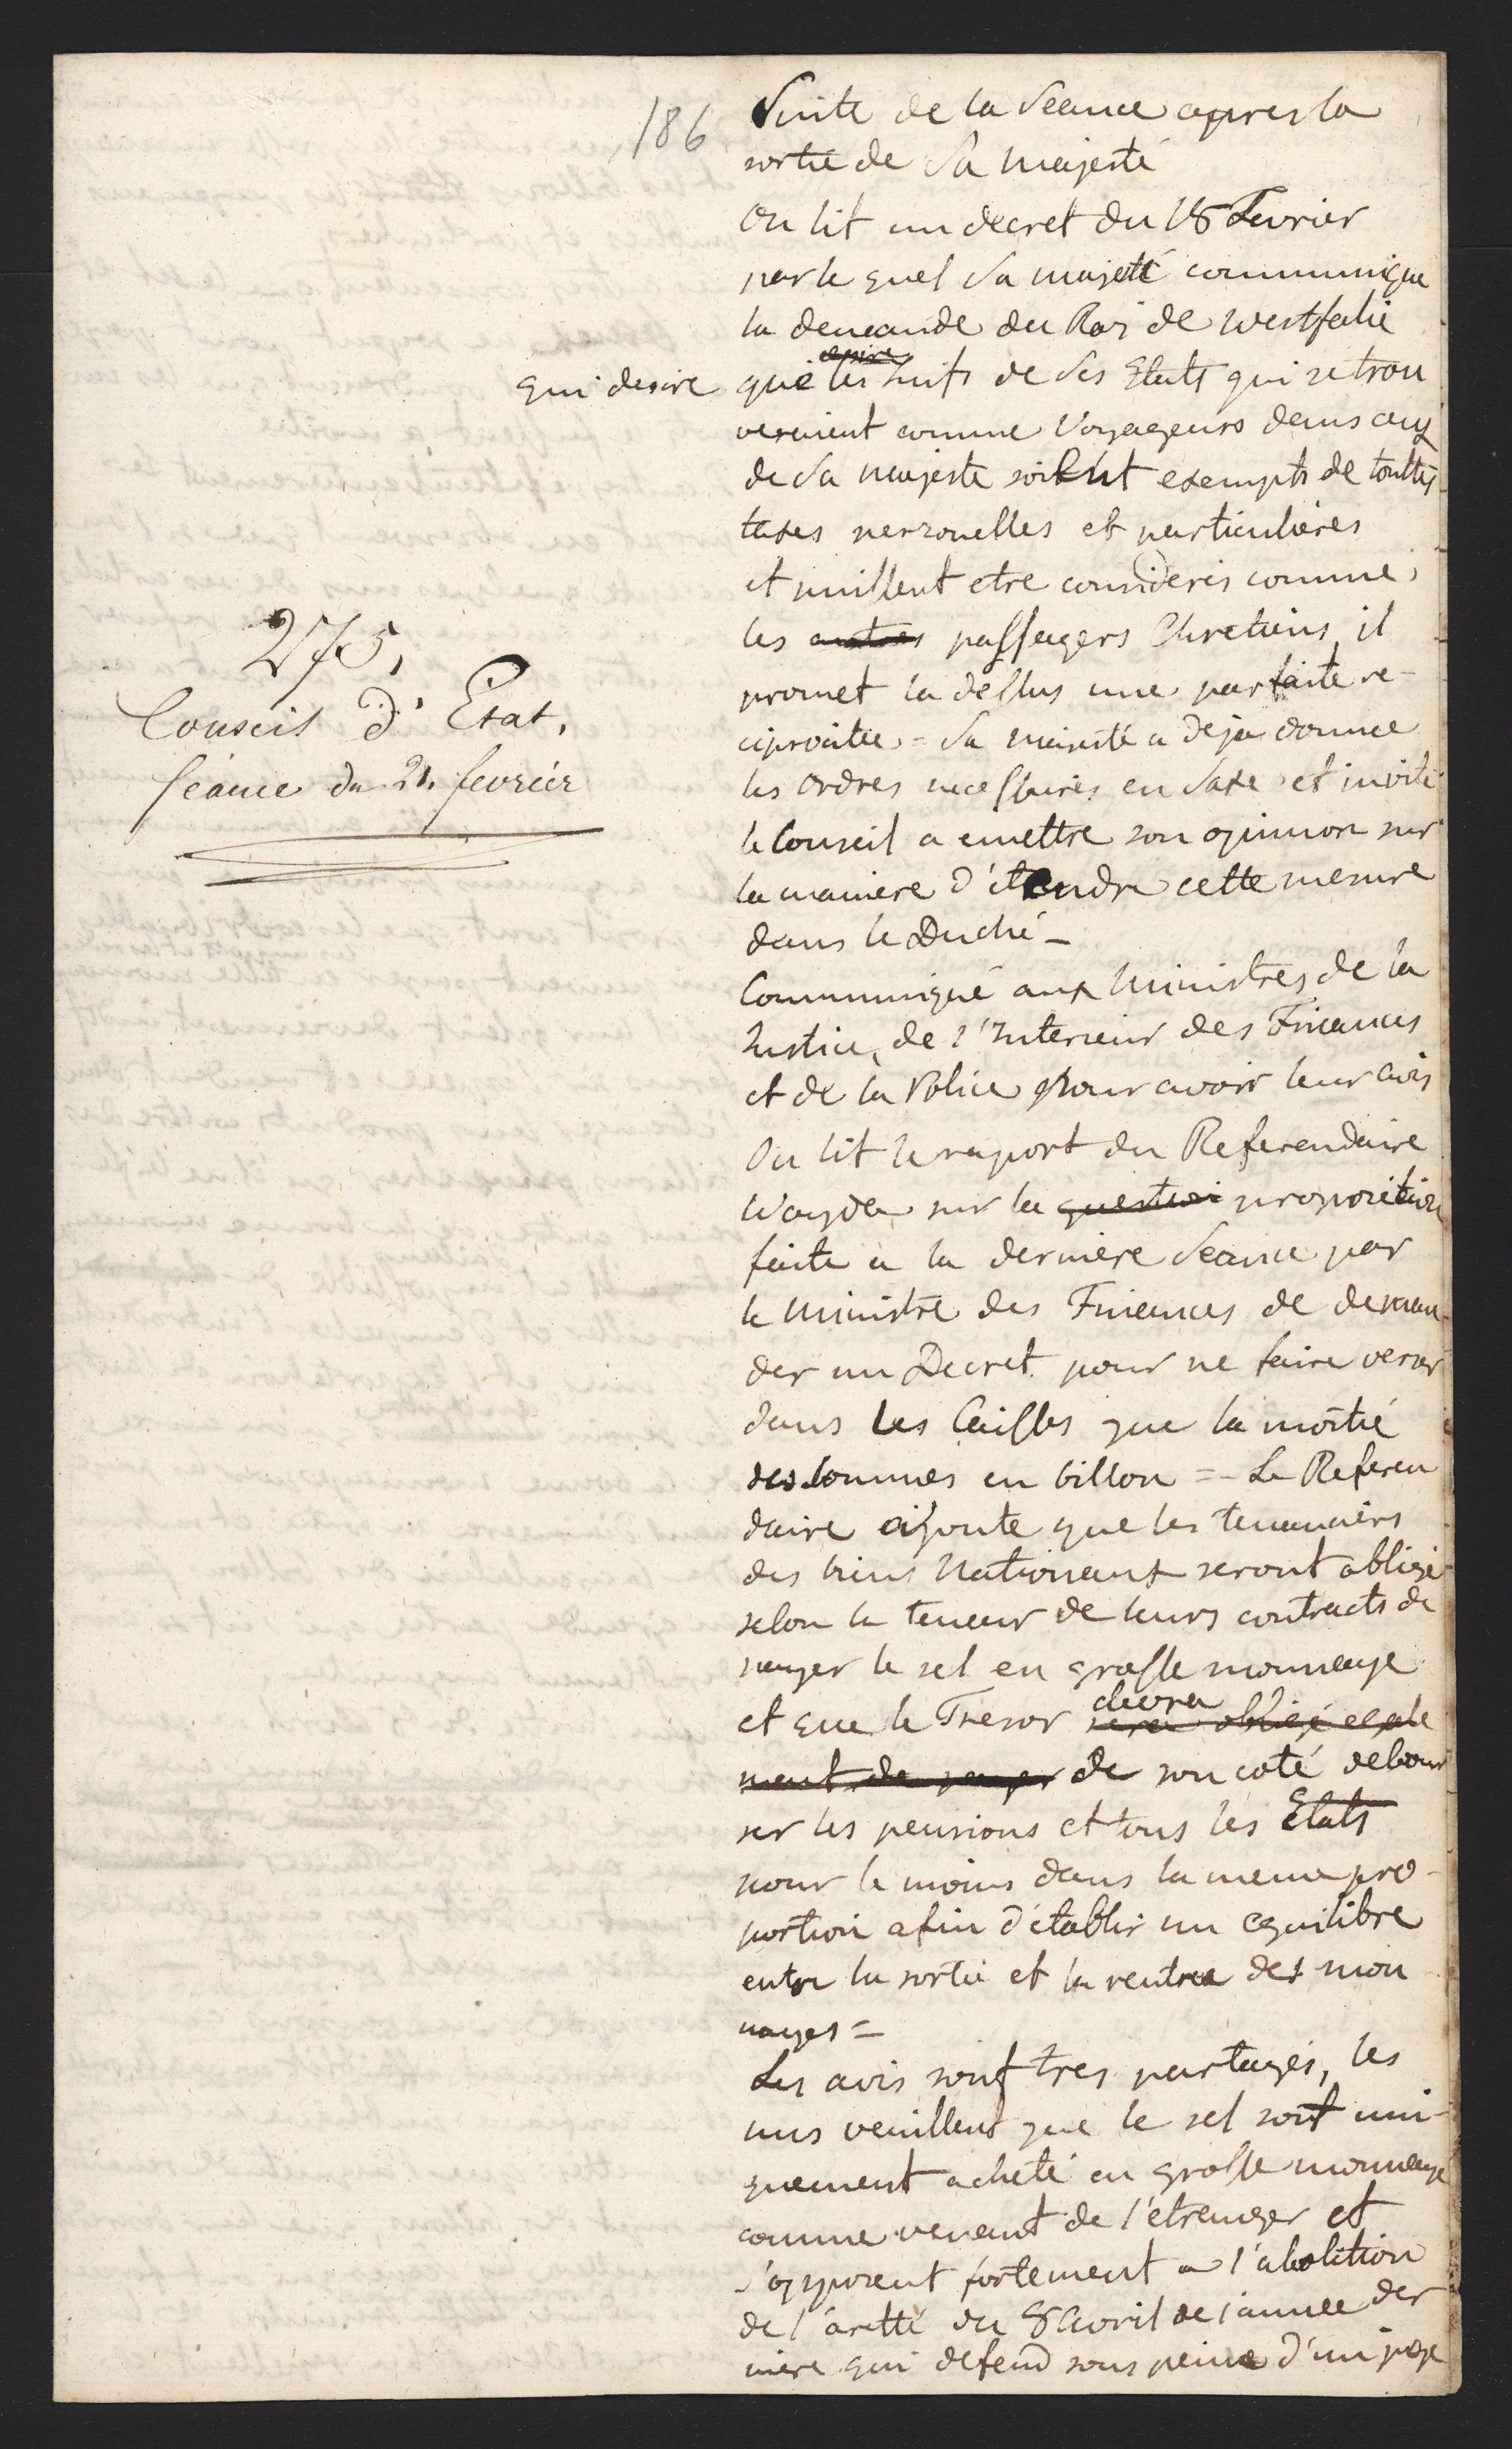 186
Suite de la Seance apres la
sortie de Sa Majesté
On lit un decret du 18 Fevrier
par le quel Sa majesté communique
la demande du Roi de Westfalie
qui desire que les Juifs de Ses Etats qui se trou
veraient comme Voyageurs dans ceux
de Sa Majesté soient exempts de touttes
taxes personelles et particulières
et puissent etre considerés comme
les autres passagers Chretiens il
promet la dessus une parfaite re-
ciprocitée = Sa Majesté a deja donné
les ordres necessaires en Saxe et invite
le Conseil a emettre son opinion sur
la maniere d'étendre cette mesure
dans le Duché -
275.
Conseil d'Etat.
Séance du 21. fevrier
Communiqué aux Ministres de la
Justice, de l'Interieur des Finances
et de la Police pour avoir leur avis
On lit le raport du Referendaire
Woyda sur la question proposition
faite a la derniere Seance par
le Ministre des Finances de deman-
der un Decret pour ne faire verser
dans les Caisses que la moitié
des sommes en billon = - Le Referen
daire ajoute que les tenanciers
des biens Nationaux seront obligé
selon la teneur de leurs contracts de
payer le sel en grosse monnaye
devra
et que le Tresor sera obligé egale
ment de payer de son coté debour
ser les pensions et tous les Etats
pour le moins dans la meme pro-
portion afin d'établir un equilibre
entre la sortie et la rentree des mon
nayes =
Les avis sont tres partagés, les
uns veuillent que le sel soit uni-
quement acheté en grosse monnaye
comme venant de l'etranger et
s'opposent fortement a l'abolition
de l'aretté du 8 Avril de l'année der
niere qui defend sous peine d'un